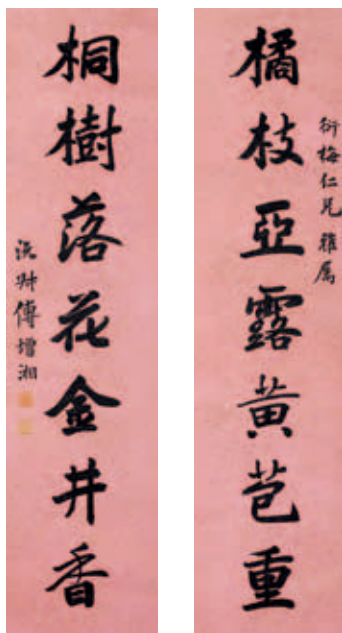 橘枝亞露黃苞重
衍梅仁兄 雅屬
桐樹落花金井香
沅叔傅增湘